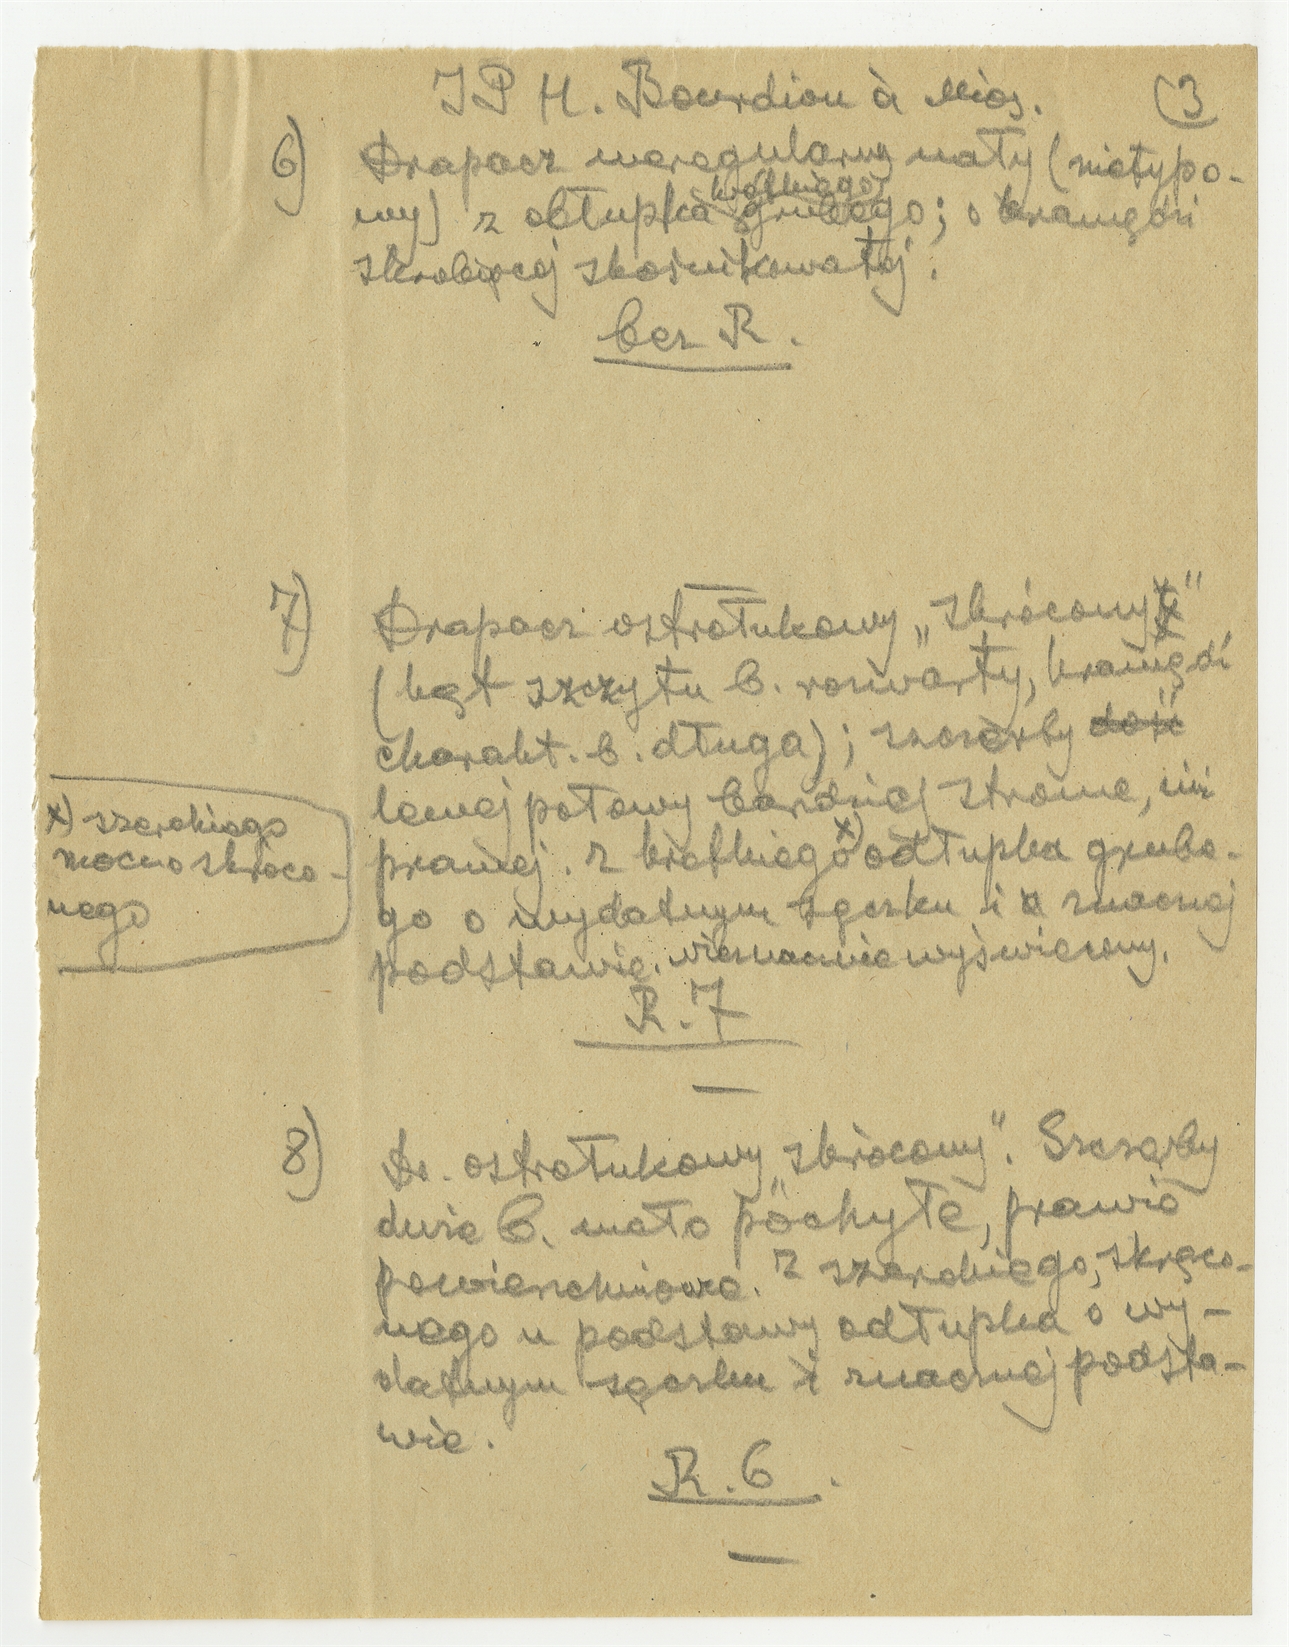 IP H. Bourdiou à Mios. (3
6) Drapacz nieregularny mały (nietypo-
krótkiego
wy) z odłupka grubego; o krawędzi
skrobiącej skośnikowatej.
bez R.
7) Drapacz ostrołukowy „skrócony"
(kąt szczytu b. rozwarty, krawędź
charakt. b. długa); szczerby dość
lewej połowy bardziej strome, niż
prawej. Z krótkiego x) odłupka grube-
go o wydatnym sęczku i o znacznej
podstawie. nieznacznie wyświecony.
x) szerokiego
mocno skróco-
nego
R. 7
8) Dr. ostrołukowy „skrócony". Szczerby
duże b. mało pochyłe, prawie
powierzchniowe. Z szerokiego, skręco-
nego u podstawy odłupka o wy-
datnym sęczku i znacznej podsta-
wie.
R. 6.